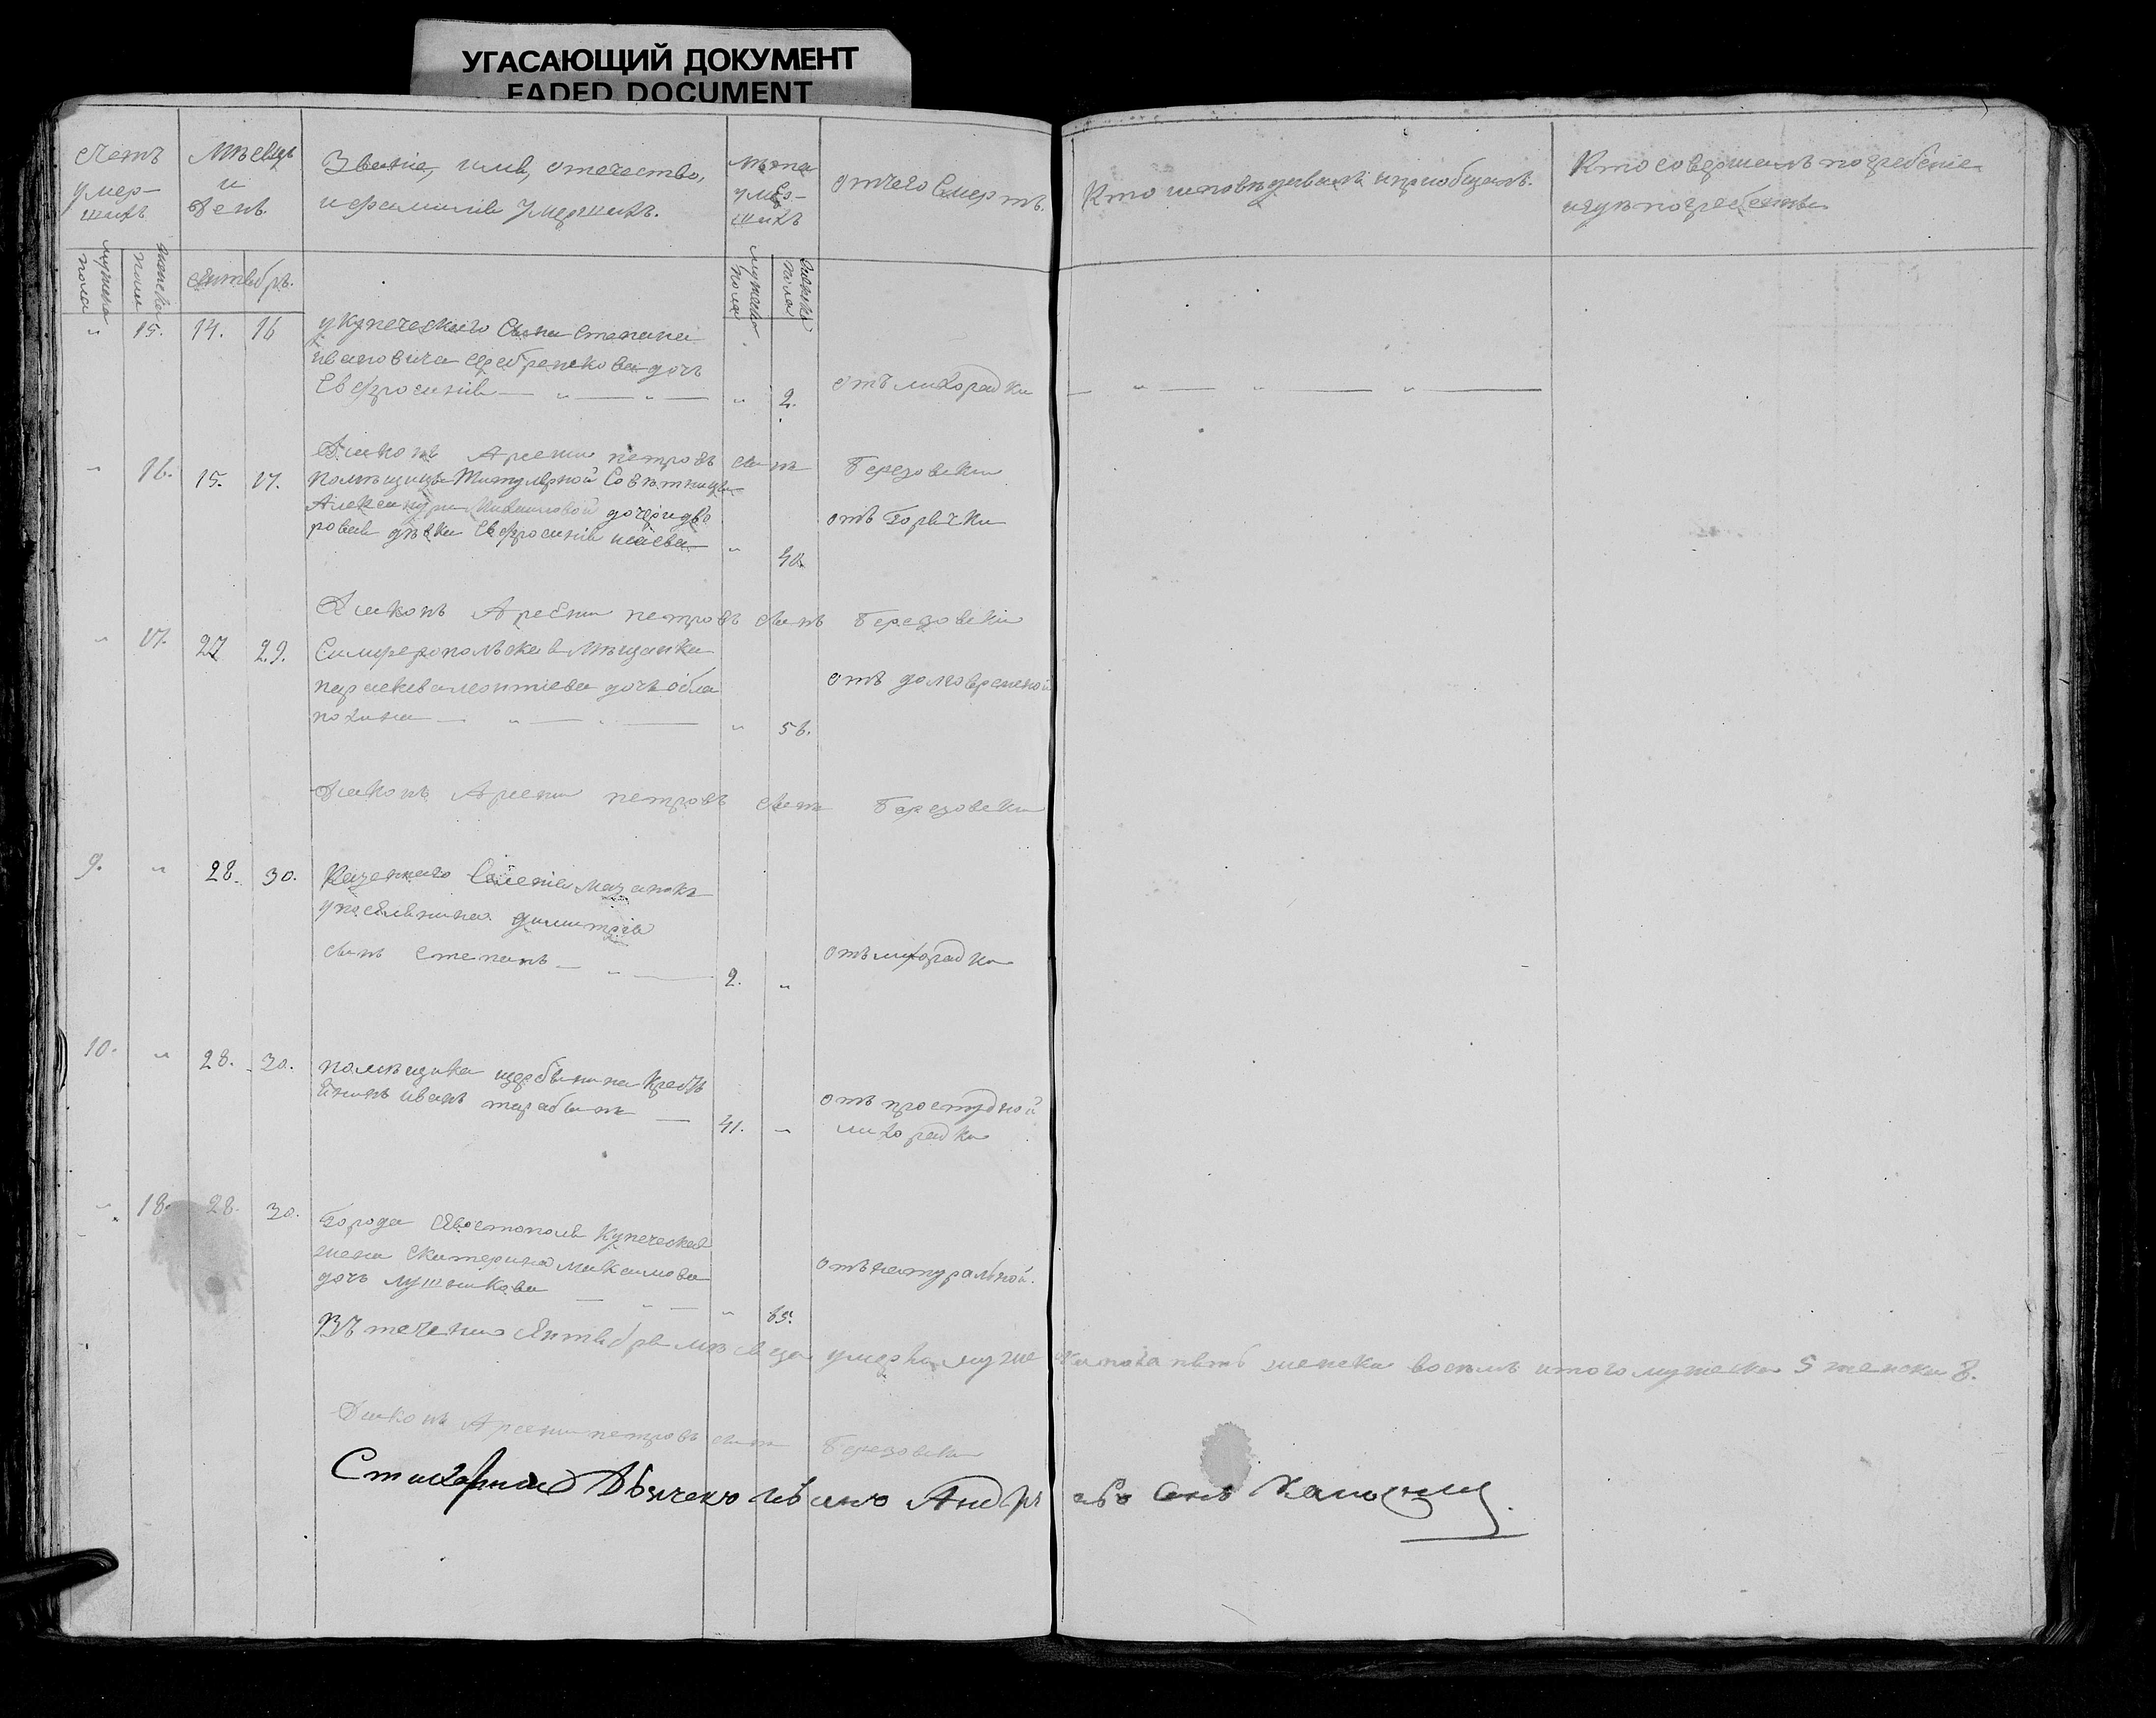 УГАСАЮЩИЙ ДОКУМЕНТ
FADED DOCUMENT
Счетъ умер-шихъ
Мѣсяцъ и день.
Званіе, имя, отечество, и фамилія умершихъ.
Лѣта умер-шихъ
отчего Смерть.
Кто исповѣдывалъ и приобщалъ.
Кто совершалъ погребеніе и гдѣ погребены
мужеска пола
женска пола
сентябрь.
мужеска пола
женска пола
" 15. 14. 16 у купеческаго сына Степана
ивановича дочь
Евфросинія — " — " — " 2. отъ лихорадки — " — " — " —
Дияконъ Арсени петровъ сынъ Березовски
" 16. 15. 17. помѣщицы Титулярной Совѣтницы
Александры дворо
вая дѣвка Евфросинія " 40. отъ горячки
Дияконъ Арсени петровъ сынъ Березовски
" 17. 27 29. Симферопольская мѣщанка
параскева леонтиева дочь обла
похина — " — " — " 56. отъ долговременой
Дияконъ Арсени петровъ сынъ Березовски
9. " 28. 30. Казенного Селенія мазанкъ
у поселянина димитрія
сынъ Степанъ — " — 2. " отъ лихорадки
10. " 28. 30. помѣщика щербинина крестья
нинъ иванъ — 41. " отъ простудной
лихорадки
" 18. 28. 30. Города Севостополя купеческая
жена Екатерина максимова
дочь лушникова — " — " 65. отъ натуральной.
Въ течении Сентября мѣсяца умерло муже ска пола пять женска восемь итого мужеска 5 женска 8.
Дияконъ Арсени петровъ сынъ Березовски
Андр сынъ